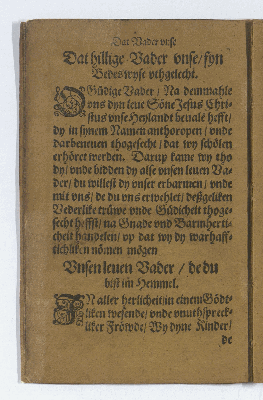 Dat Vader vnse
Dat hillige Vader vnse/ syn
Bedes wyse vthgelecht.
O Güdige Vader/ Na demmahle
vns dyn leue Söne Jesus Chri-
stus vnse Heylandt beuale hefft/
dy in synem Namen anthoropen/ vnde
darbeneuen thogesecht/ dat wy schölen
erhöret werden. Darup kame wy tho
dy/ vnde bidden dy alse vnsen leuen Va-
der/ du willest dy vnser erbarmen/ vnde
mit vns/ de du vns erwehlet/ deßgeliken
Vederlike trüwe vnde Güdicheit thoge-
secht heffst/ na Gnade vnd Barmherti-
cheit handelen/ vp dat wy dy warhaff-
tichliken nömen mögen
Vnsen leuen Vader/ de du
bist im Hemmel.
IN aller herlicheit/ in einem Gödt-
liken wesende/ vnde vnuthspreck-
liker Fröwde/ Wy dyne Kinder/
de